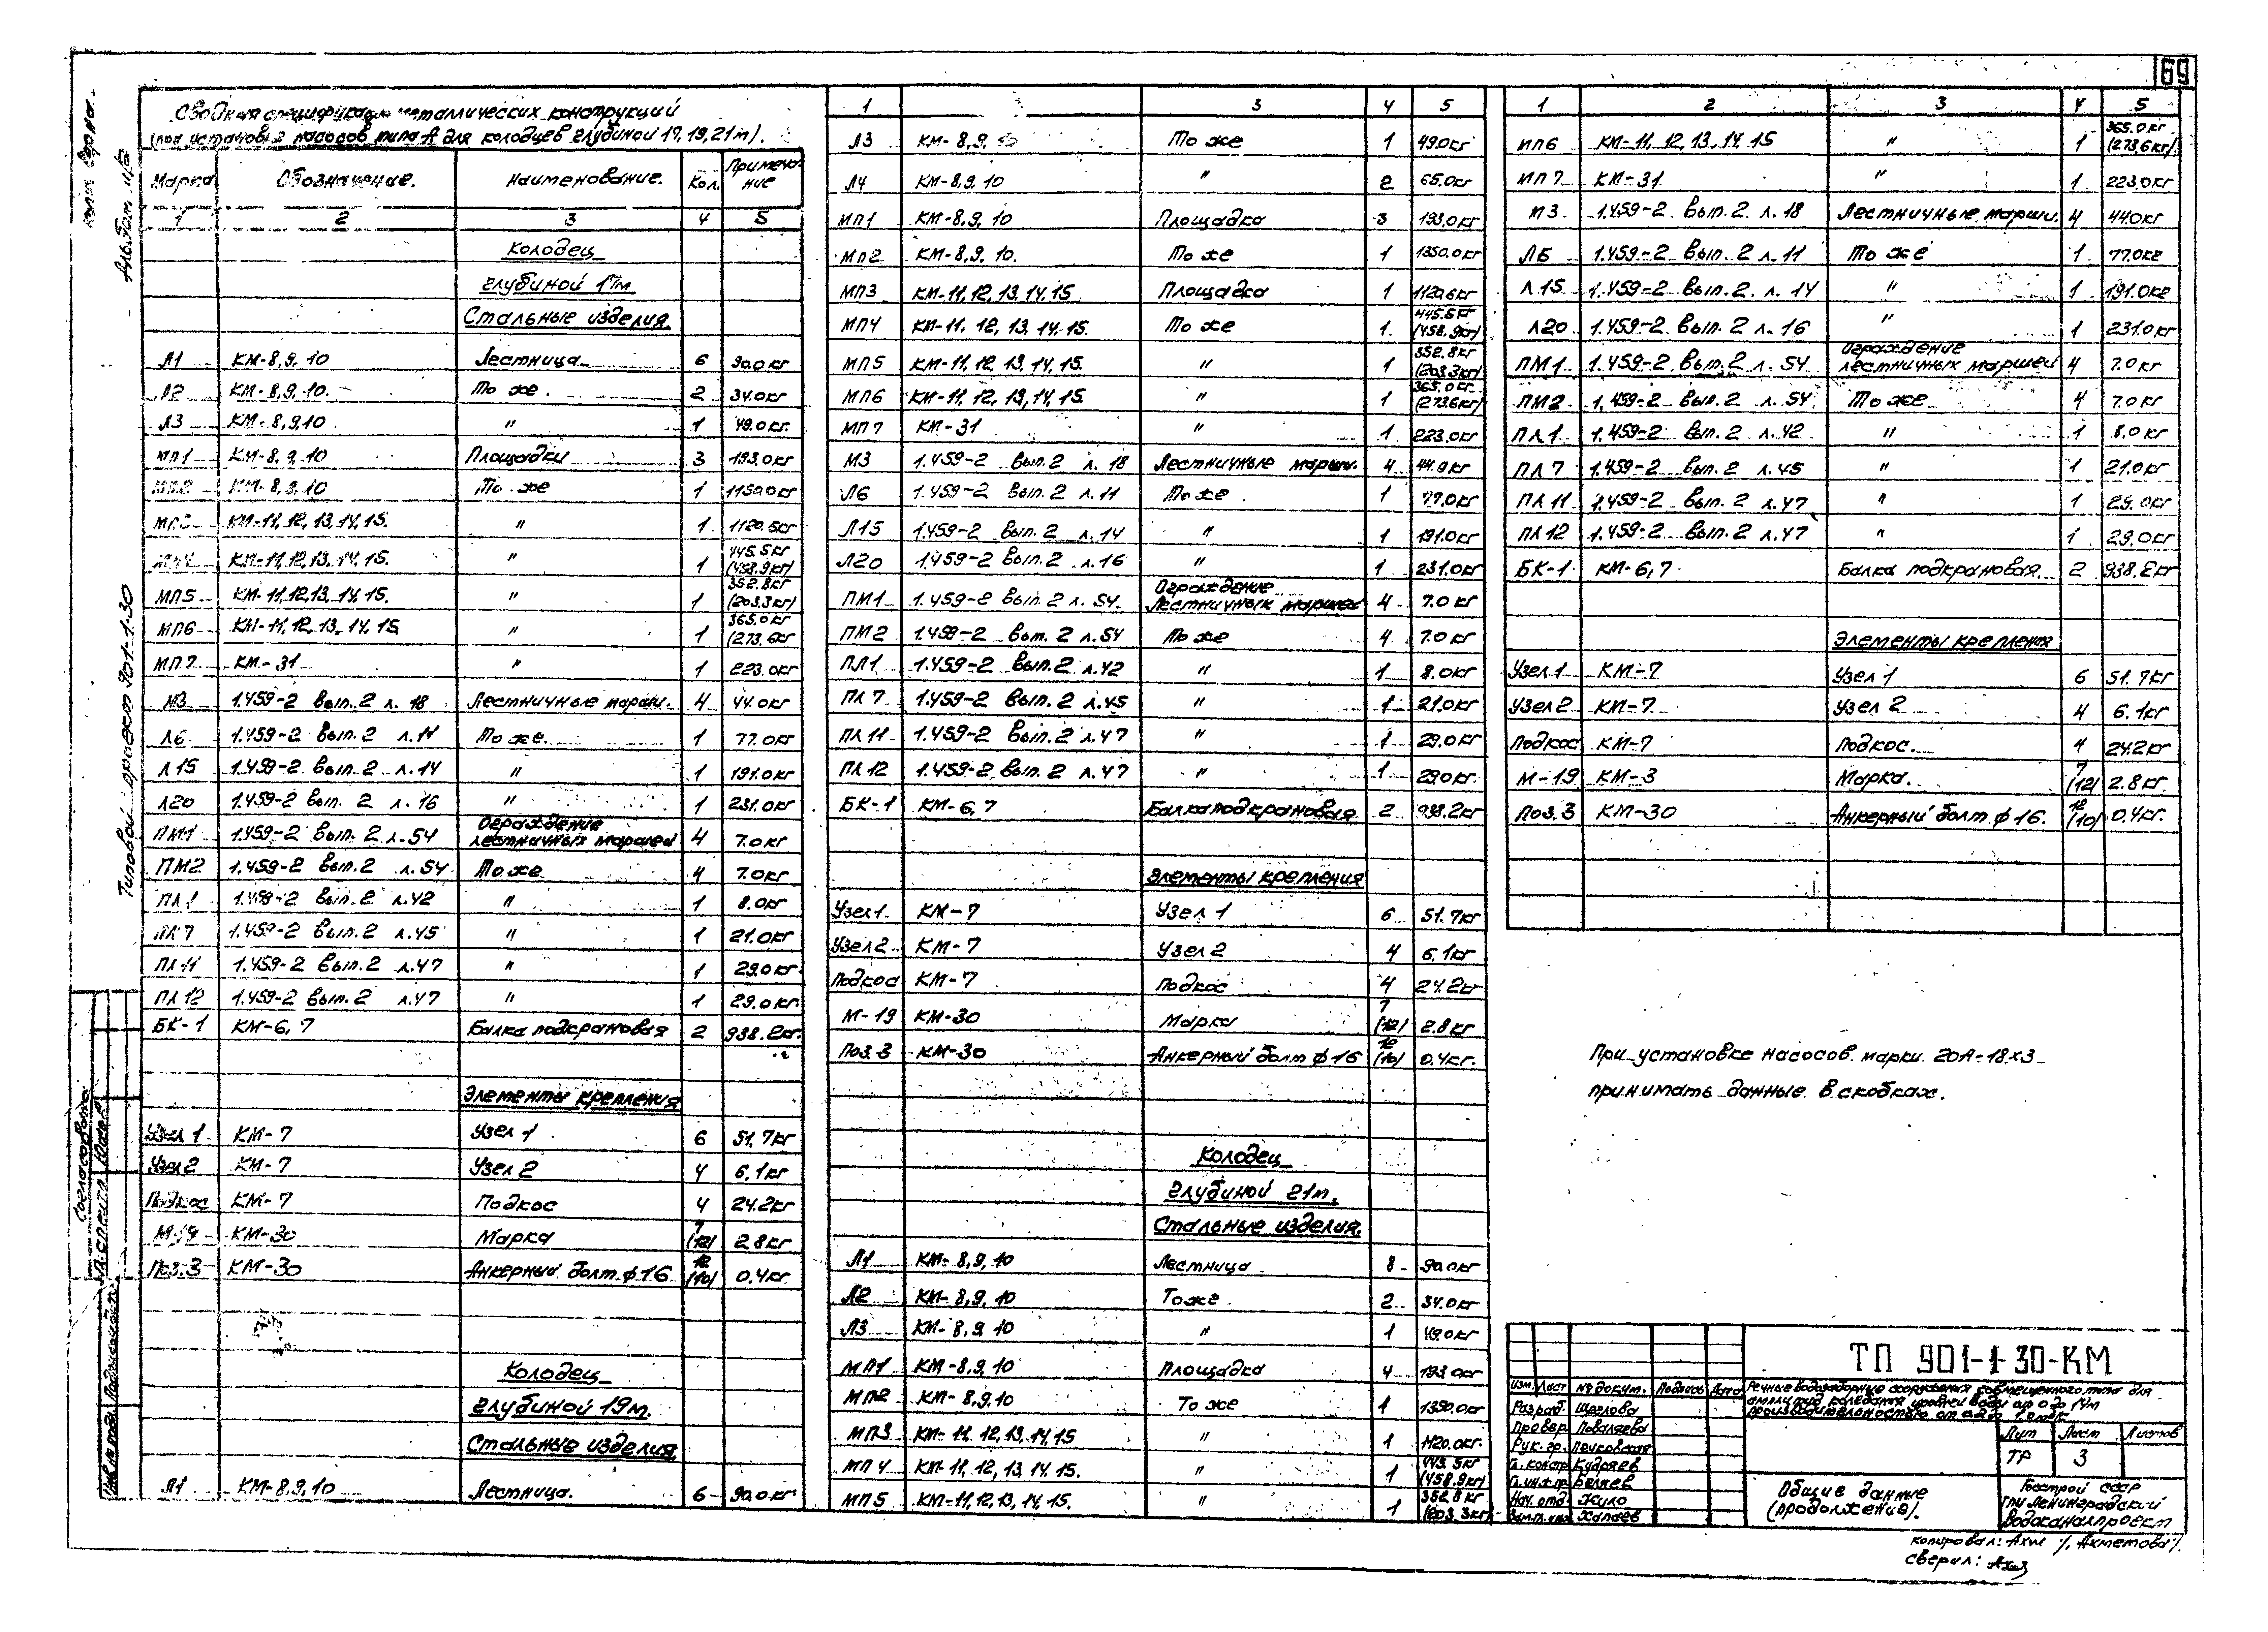 69
Альбом II/2
Типовой проект 901-1-30
Согласовано
Сводная спецификация металлических конструкций
(под установ. 2 насосов типа А для колодцев глубиной 17, 19, 21м).
Марка Обозначение. Наименование. Кол. Примечание
1 2 3 4 5
Колодец
глубиной 17м
Стальные изделия.
Л1 КМ-8,9,10 Лестница 6 90.0кг
Л2 КМ-8,9,10. То же. 2 34.0кг
Л3 КМ-8,9,10 " 1 49.0кг.
МП1 КМ-8,9,10 Площадки 3 193.0кг
МП2 КМ-8,9,10 То же 1 1150.0кг
МП3 КМ-11,12,13,14,15. " 1 1120.6кг
МП4 КМ-11,12,13,14,15. " 1 445.5кг (458.9кг)
МП5 КМ-11,12,13,14,15. " 1 352.8кг (203.3кг)
МП6 КМ-11,12,13,14,15 " 1 365.0кг (273,6кг
МП7 КМ-31 " 1 223.0кг
М3 1.459-2 вып.2 л. 18 Лестничные марши. 4 44.0кг
Л6 1.459-2 вып.2 л.11 То же. 1 77.0кг
Л15 1.459-2 вып.2 л.14 " 1 191.0кг
Л20 1.459-2 вып. 2 л. 16 " 1 231.0кг
ПМ1 1.459-2 вып.2 л.54 Ограждение лестничных маршей 4 7.0кг
ПМ2 1.459-2 вып.2 л.54 То же 4 7.0кг
ПЛ1 1.459-2 вып.2 л.42 " 1 8.0кг
ПЛ7 1.459-2 вып.2 л.45 " 1 21.0кг
ПЛ11 1.459-2 вып.2 л.47 " 1 29.0кг
ПЛ12 1.459-2 вып.2 л.47 " 1 29.0кг.
БК-1 КМ-6,7 Балка подкрановая 2 938.2кг.
Элементы крепления
Узел 1 КМ-7 Узел 1 6 51.7кг
Узел 2 КМ-7 Узел 2 4 6,1кг
Подкос КМ-7 Подкос 4 24.2кг
М-19 КМ-30 Марка 7 (12) 2.8кг
Поз.3 КМ-30 Анкерный болт ф16 12 (10) 0.4кг
Колодец
глубиной 19м.
Стальные изделия
Л1 КМ-8,9,10 Лестница. 6 90.0кг
1 3 4 5
Л3 КМ-8,9,10 То же 1 49.0кг
Л4 КМ-8,9,10 " 2 65.0кг
МП1 КМ-8,9,10 Площадка 3 193.0кг
МП2 КМ-8,9,10. То же 1 1350.0кг
МП3 КМ-11,12,13,14,15 Площадка 1 1120.6кг
МП4 КМ-11,12,13,14,15. То же 1 445.5кг (458.9кг)
МП5 КМ-11,12,13,14,15. " 1 352.8кг (203.3кг)
МП6 КМ-11,12,13,14,15 " 1 365.0кг (273.6кг)
МП7 КМ-31 " 1 223.0кг
М3 1.459-2 вып.2 л. 18 Лестничные марши. 4 44.0кг
Л6 1.459-2 вып.2 л.11 То же. 1 77.0кг
Л15 1.459-2 вып.2 л.14 " 1 191.0кг
Л20 1.459-2 вып.2 л.16 " 1 231.0кг
ПМ1 1.459-2 вып.2 л. 54. Ограждение лестничных маршей 4 7.0кг
ПМ2 1.459-2 вып.2 л.54 То же 4 7.0кг
ПЛ1 1.459-2 вып.2 л.42 " 1 8.0кг
ПЛ7 1.459-2 вып.2 л.45 " 1 21.0кг
ПЛ11 1.459-2 вып.2 л.47 " 1 29.0кг
ПЛ12 1.459-2 вып.2 л.47 " 1 29.0кг.
БК-1 КМ-6,7 Балка подкрановая 2 938.2кг
Элементы крепления
Узел1 КМ-7 Узел 1 6 51.7кг
Узел2 КМ-7 Узел 2 4 6.1кг
Подкос КМ-7 Подкос 4 24.2кг
М-19 КМ-30 Марка 7 (12) 2.8кг
Поз.3 КМ-30 Анкерный болт ф16 12 (10) 0.4кг.
Колодец
глубиной 21м.
Стальные изделия.
Л1 КМ-8,9,10 Лестница 8 90.0кг
Л2 КМ-8,9,10 То же. 2 34.0кг
Л3 КМ-8,9,10 " 1 49.0кг
МП1 КМ-8,9,10 Площадка 4 193.0кг
МП2 КМ-8,9,10 То же 1 1350.0кг
МП3 КМ-11,12,13,14,15 " 1 1120.0кг.
МП4 КМ-11,12,13,14,15. " 1 445.5кг (458.9кг)
МП5 КМ-11,12,13,14,15. " 1 352.8кг (203.3кг)
1 2 3 4 5
МП6 КМ-11,12,13,14,15 " 1 365.0кг (273,6кг).
МП7 КМ-31 " 1 223.0кг
М3 1.459-2 вып.2 л.18 Лестничные марши. 4 44.0кг
Л6 1.459-2 вып.2 л.11 То же 1 77.0кг
Л15 1.459-2 вып.2. л.14 " 1 191.0кг
Л20 1.459-2 вып.2 л.16 " 1 231.0кг
ПМ1 1.459-2 вып.2 л.54 Ограждение лестничных маршей 4 7.0кг
ПМ2 1.459-2 вып.2 л.54 То же 4 7.0кг
ПЛ1 1.459-2 вып.2 л.42 " 1 8.0кг
ПЛ7 1.459-2 вып.2 л.45 " 1 21.0кг
ПЛ11 1.459-2 вып.2 л.47 " 1 29.0кг
ПЛ12 1.459-2 вып.2 л.47 " 1 29.0кг
БК-1 КМ-6,7 Балка подкрановая. 2 938.2кг
Элементы крепления
Узел1 КМ-7 Узел 1 6 51.7кг
Узел2 КМ-7 Узел 2 4 6.1кг
Подкос КМ-7 Подкос. 4 24.2кг
М-19 КМ-3 Марка. 7 (12) 2.8кг.
Поз.3 КМ-30 Анкерный болт ф16. 12 (10) 0.4кг.
При установке насосов марки 20А-18х3
принимать данные в скобках.
ТП 901-1-30-КМ
Изм. Лист № докум. Подпись Дата
Речные водозаборные сооружения совмещенного типа для
амплитуд колебания уровней воды от 0 до 14м
производительностью от 0.2 до 1.0 м³/с
Разраб. Щеглова
Провер. Поваляева
Рук.гр. Печковская
Гл.констр Кудряев
Гл.инж.пр Беляев
Нач.отд. Жило
Зам.гл.инж Хапаев
Лит Лист Листов
ТР 3
Общие данные
(продолжение).
Госстрой СССР
ГПИ Ленинградский
Водоканалпроект
Копировал: Ахм /Ахметова/.
Сверил: